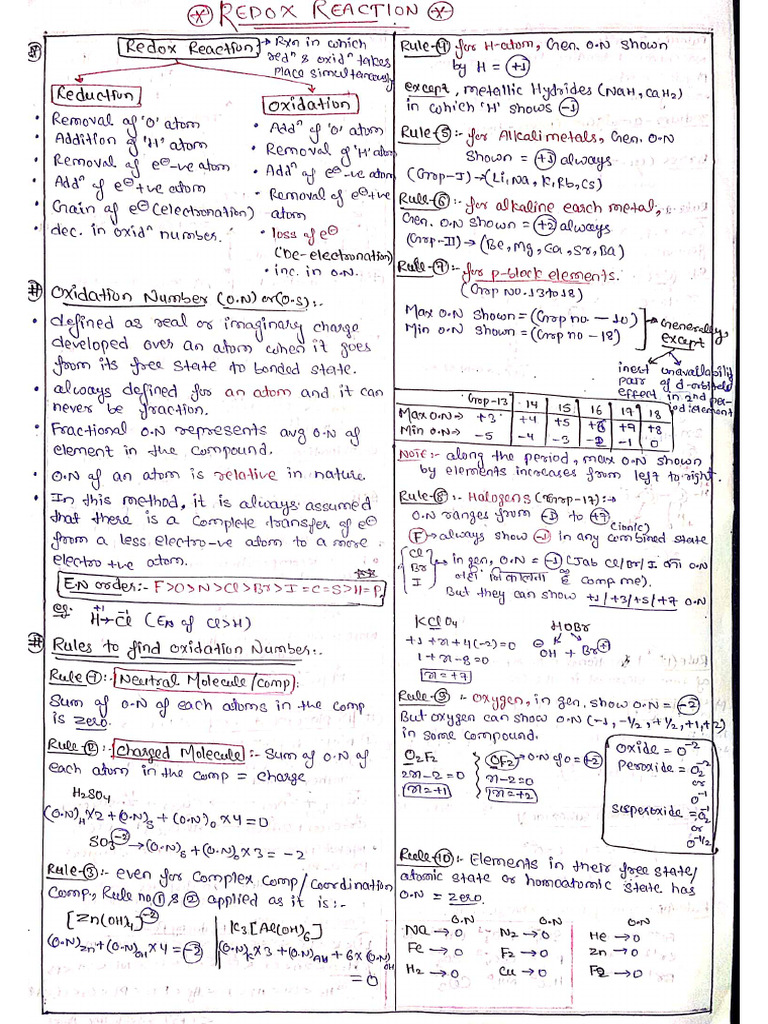 REDOX REACTION
Redox Reaction → Rxn in which
redⁿ & oxidⁿ takes
place simultaneously
Reduction
Oxidation
• Removal of 'O' atom
• Addition of 'H' atom
• Removal of e⊖-ve atom
• Addⁿ of e⊖+ve atom
• Gain of e⊖ (electronation)
• dec. in oxidⁿ number.
• Addⁿ of 'O' atom
• Removal of 'H' atom
• Addⁿ of e⊖-ve atom
• Removal of e⊖+ve
atom
• loss of e⊖
(De-electronation)
• inc. in O.N.
# Oxidation Number (O.N) or (O.S):-
• defined as real or imaginary charge
developed over an atom when it goes
from its free state to bonded state.
• always defined for an atom and it can
never be fraction.
• Fractional O.N represents avg O.N of
element in the compound.
• O.N of an atom is relative in nature.
• In this method, it is always assumed
that there is a complete transfer of e⊖
from a less electro-ve atom to a more
electro+ve atom.
E.N order:- F>O>N>Cl>Br>I=C=S>H=P
eg: H⁺¹→Cl⁻¹ (EN of Cl>H)
# Rules to find oxidation Number:.
Rule-①:- Neutral Molecule/comp:
Sum of O.N of each atoms in the comp
is zero.
Rule-②:- Charged Molecule :- Sum of O.N of
each atom in the comp = charge
H₂SO₄
(O.N)H×2+(O.N)S+(O.N)O×4=0
SO₃⁻² → (O.N)S+(O.N)O×3=-2
Rule-③:- even for Complex Comp/Coordination
Comp., Rule no ① & ② applied as it is:-
[Zn(OH)₄]⁻²
(O.N)Zn+(O.N)OH×4=-2
K₃[Al(OH)₆]
(O.N)K×3+(O.N)Al+6×(O.N)OH
=0
Rule-④ for H-atom, Gen. O.N shown
by H = +1
except, metallic Hydrides (NaH, CaH₂)
in which 'H' shows -1
Rule-⑤:- for Alkali metals, Gen. O.N
shown = +1 always
(Grop-I)→(Li, Na, K, Rb, Cs)
Rule-⑥:- for alkaline earch metal,
Gen. O.N shown = +2 always
(Grop-II)→(Be, Mg, Ca, Sr, Ba)
Rule-⑦:- for p-block elements.
(Grop no. 13 to 18)
Max O.N shown = (Grop no - 10)
Min O.N shown = (Grop no - 18)
→ Generally,
except
inert
pair
effect
unavailability
of d-orbitals
in 2nd per-
iod element
Grop-13 | 14 | 15 | 16 | 17 | 18
Max O.N→ +3 | +4 | +5 | +6 | +7 | +8
Min O.N→ -5 | -4 | -3 | -2 | -1 | 0
NOTE:- along the period, max O.N shown
by elements increases from left to right.
Rule-⑧:- Halogens (Grop-17):→
O.N ranges from -1 to +7
(F)→ always show -1 in any combined state (ionic)
{Cl Br I → in gen, O.N = -1 (Jab Cl/Br/I का O.N
नहीं निकालना है comp me).
But they can show +1/+3/+5/+7 O.N
KClO₄
+1+x+4(-2)=0
1+x-8=0
x=+7
HOBr
⊖OH + Br⊕
Rule-⑨:- Oxygen, in gen. show O.N = -2
But oxygen can show O.N (-1, -1/2, +1/2, +1, +2)
in some compound.
O₂F₂
2x-2=0
x=+1
OF₂ → O.N of O=+2
x-2=0
x=+2
oxide = O⁻²
peroxide = O₂⁻²
or
O⁻¹
superoxide = O₂⁻¹
or
O⁻¹/²
Rule-⑩:- Elements in their free state/
atomic state or homoatomic state has
O.N = zero.
O.N O.N O.N
Na→0 N₂→0 He→0
Fe→0 F₂→0 Zn→0
H₂→0 Cu→0